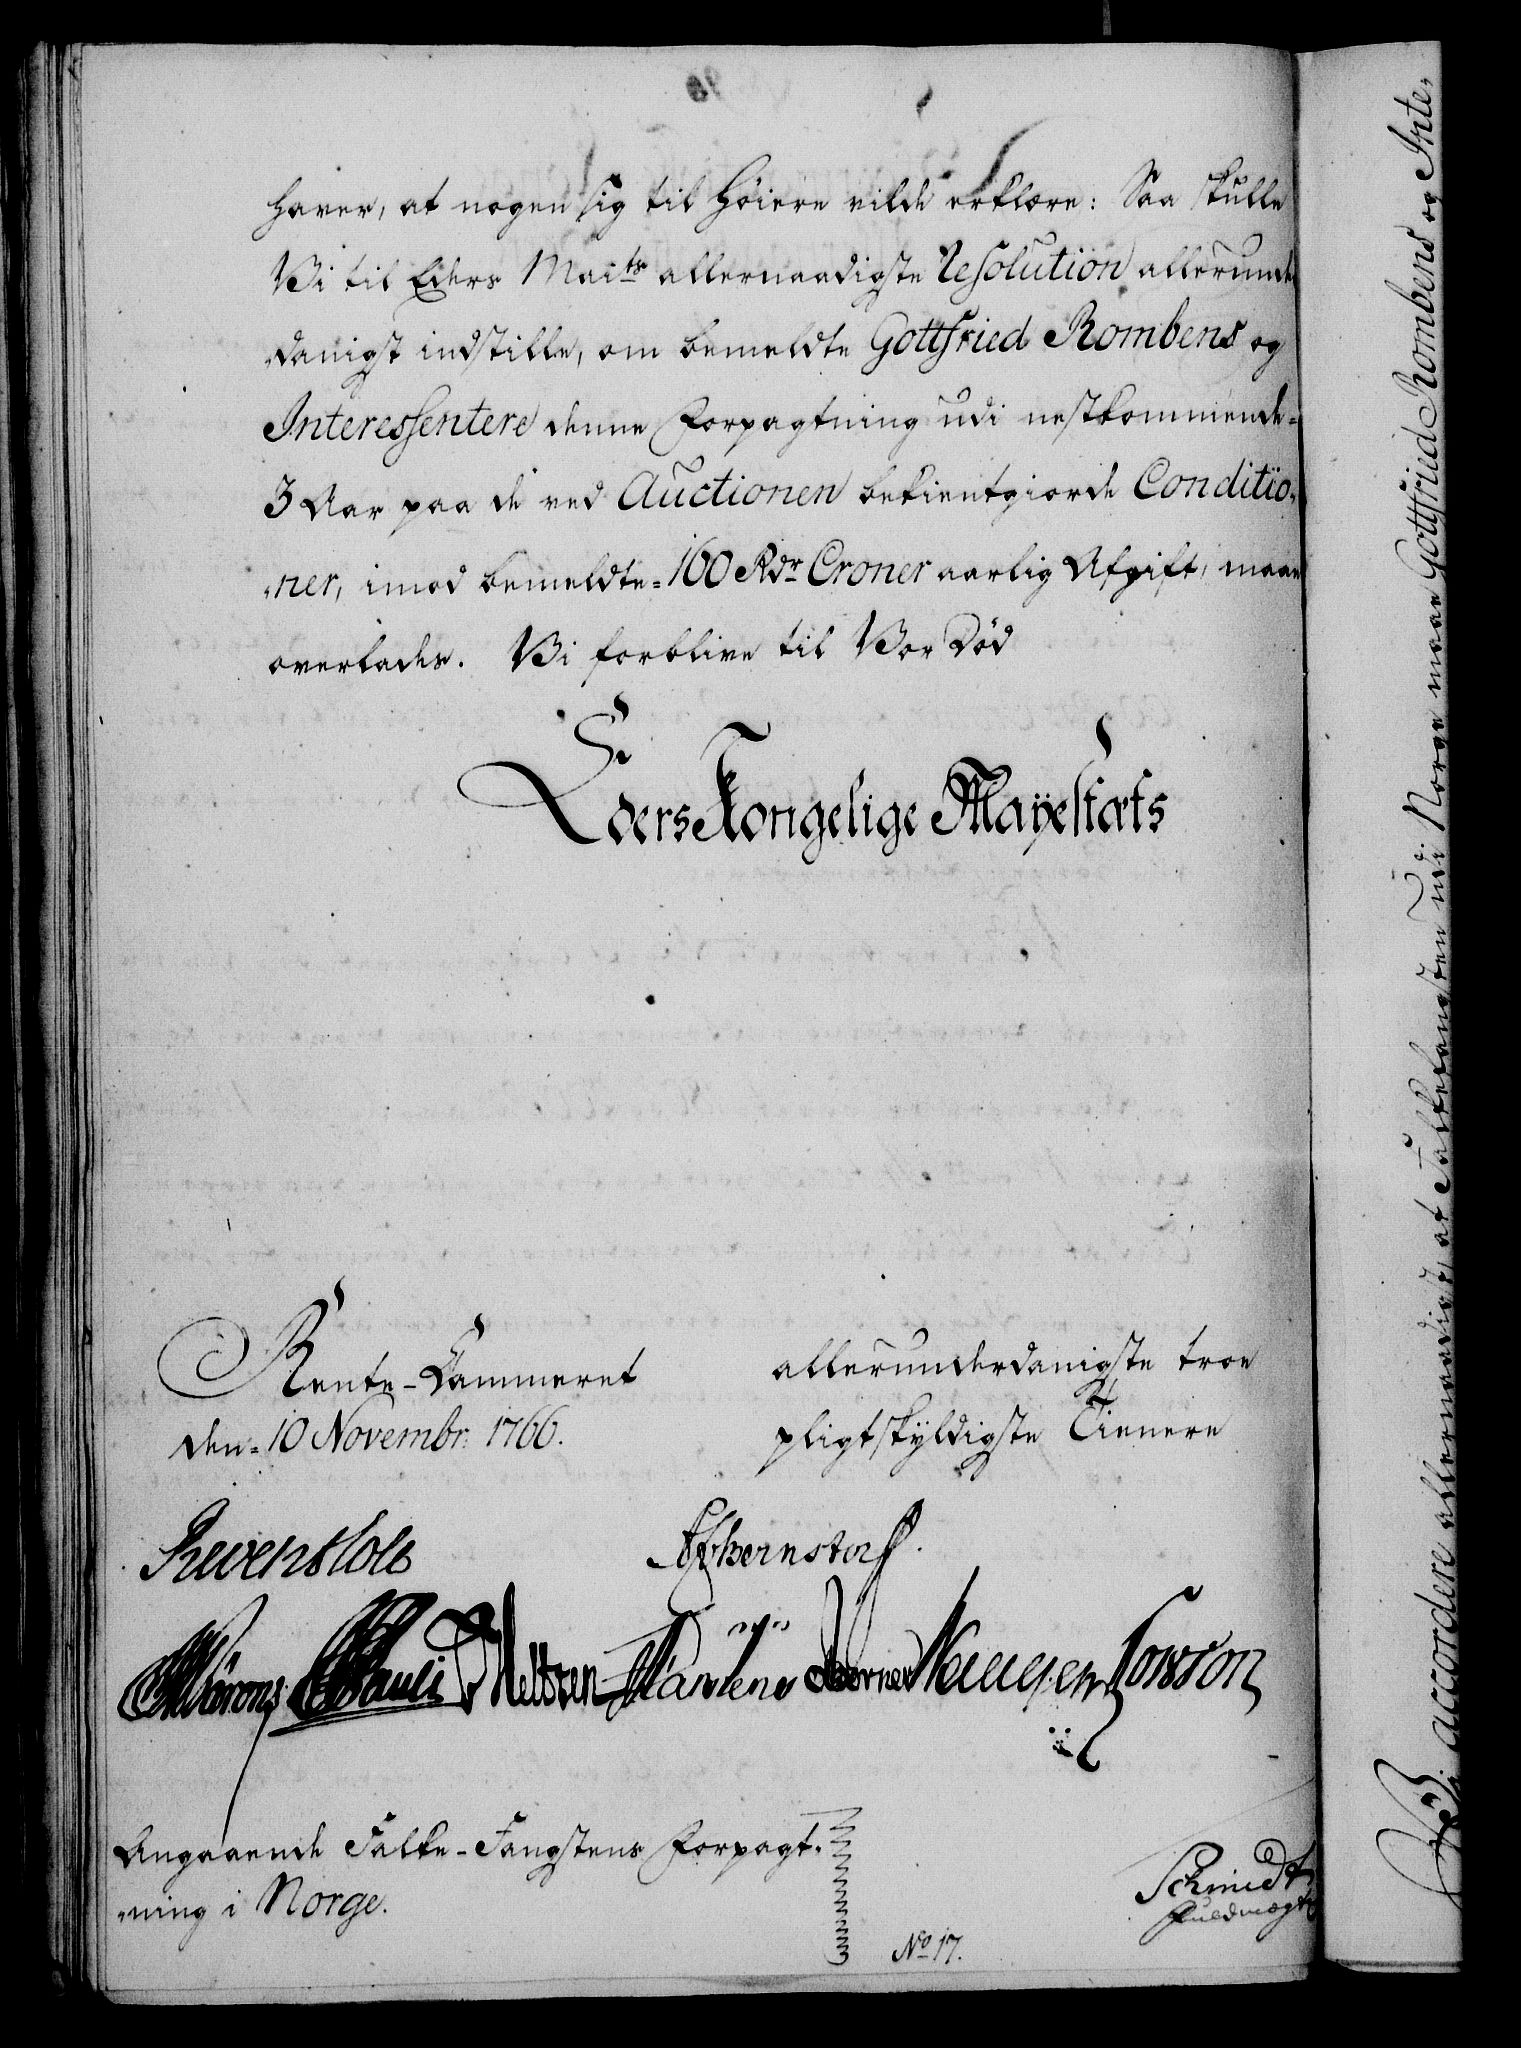 haver, at nogen sig til höiere vilde erklære: Saa skulle
Vi til Eders Maits allernaadigste Resolution allerunder
danigst indstille, om bemeldte Gottfried Rombens og
Interessentere denne Forpagtning udi nestkommende-
3 Aar paa de ved Auctionen bekientgiorde Conditio-
ner, imod bemeldte 160 Rdr Croner aarlig Afgift, maae
overlades. Vi forblive til Vor Död
Eders Kongelige Mayestæts
Rente-Cammeret
den 10 Novembr. 1766.
allerunderdanigste troe
pligtskyldigste Tienere
Reventlow
Bernstorff.
Angaaende Falke-Fangstens Forpagt-
ning i Norge.
No 17.
Schmidt
Fuldmægt
Vi accordere allernaadigst, at Falkefangsten udi Norge maae Gottfried Rombens og Inte-